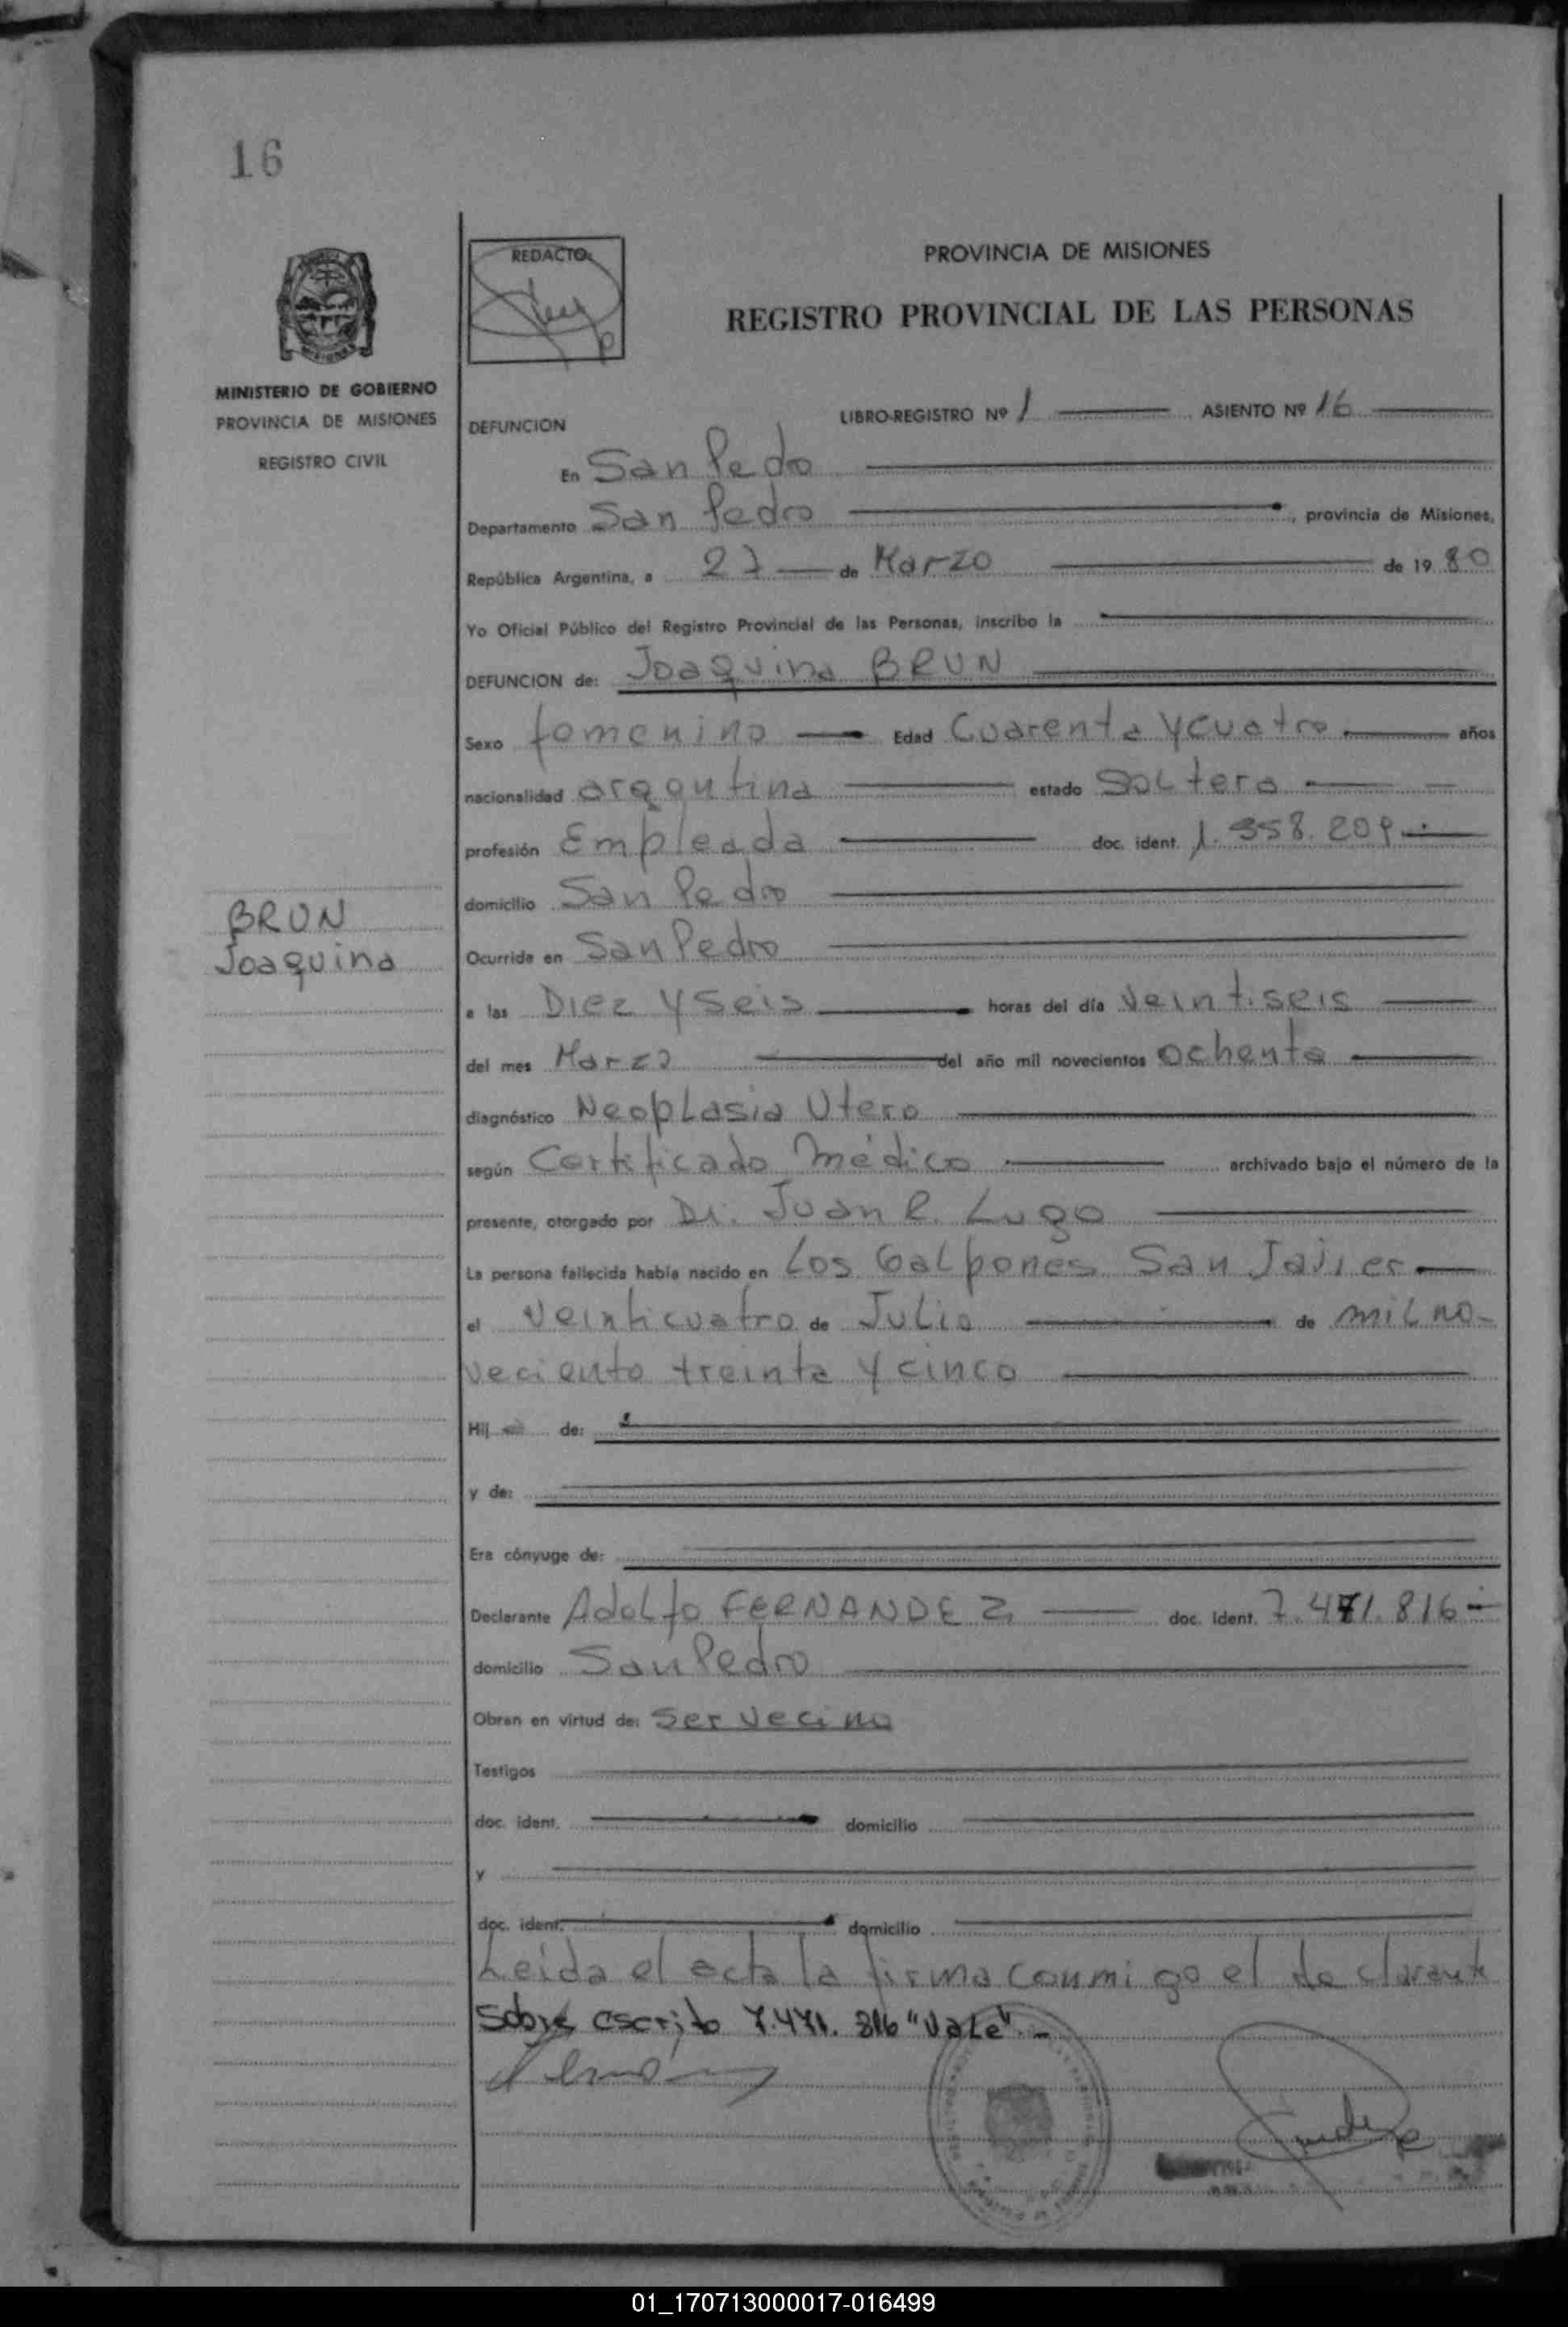 16
REDACTO:
PROVINCIA DE MISIONES
REGISTRO PROVINCIAL DE LAS PERSONAS
MINISTERIO DE GOBIERNO
PROVINCIA DE MISIONES
REGISTRO CIVIL
LIBRO-REGISTRO Nº 1 ASIENTO Nº 16
DEFUNCION
En San Pedo
Departamento San Pedro, provincia de Misiones,
República Argentina, a 27 de Marzo de 19 80
Yo Oficial Público del Registro Provincial de las Personas, inscribo la
DEFUNCION de: Joaquina BRUN
Sexo femenino Edad Cuarenta y cuatro años
nacionalidad argentina estado Soltera
profesión Empleada doc. ident. 1.358.209
domicilio San Pedro
BRUN
Joaquina
Ocurrida en San Pedro
a las Diez y Seis horas del día veintiseis
del mes Marzo del año mil novecientos ochenta
diagnóstico Neoplasia Utero
según Certificado Médico archivado bajo el número de la
presente, otorgado por Dr. Juan R. Lugo
La persona fallecida había nacido en Los Galpones San Javier
el veinticuatro de Julio de mil no-
veciento treinta y cinco
Hij de:
y de:
Era cónyuge de:
Declarante Adolfo FERNANDEZ doc. ident. 7.471.816
domicilio San Pedro
Obran en virtud de: Ser vecino
Testigos
doc. ident. domicilio
y
doc. ident. domicilio
Leida el acta la firma conmigo el declarante
Sobre escrito 7.471.816 "Vale".-
01_170713000017-016499